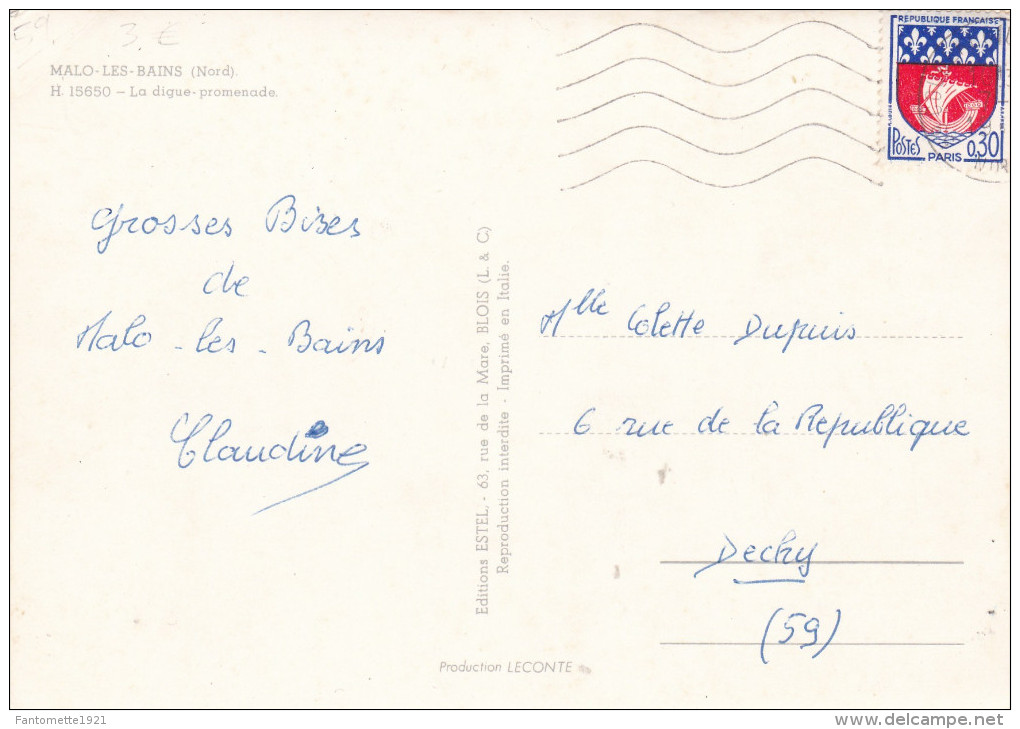 59. 3.€
MALO-LES-BAINS (Nord).
H. 15650 – La digue-promenade.
REPUBLIQUE FRANÇAISE
POSTES
0,30
PARIS
Grosses Bises
de
Malo-les-Bains
Claudine
Editions ESTEL, - 63, rue de la Mare, BLOIS (L. & C)
Reproduction interdite - Imprimé en Italie.
Mlle Colette Dupuis
6 rue de la Republique
Dechy
(59)
Production LECONTE
Fantomette1921
delcampe.net